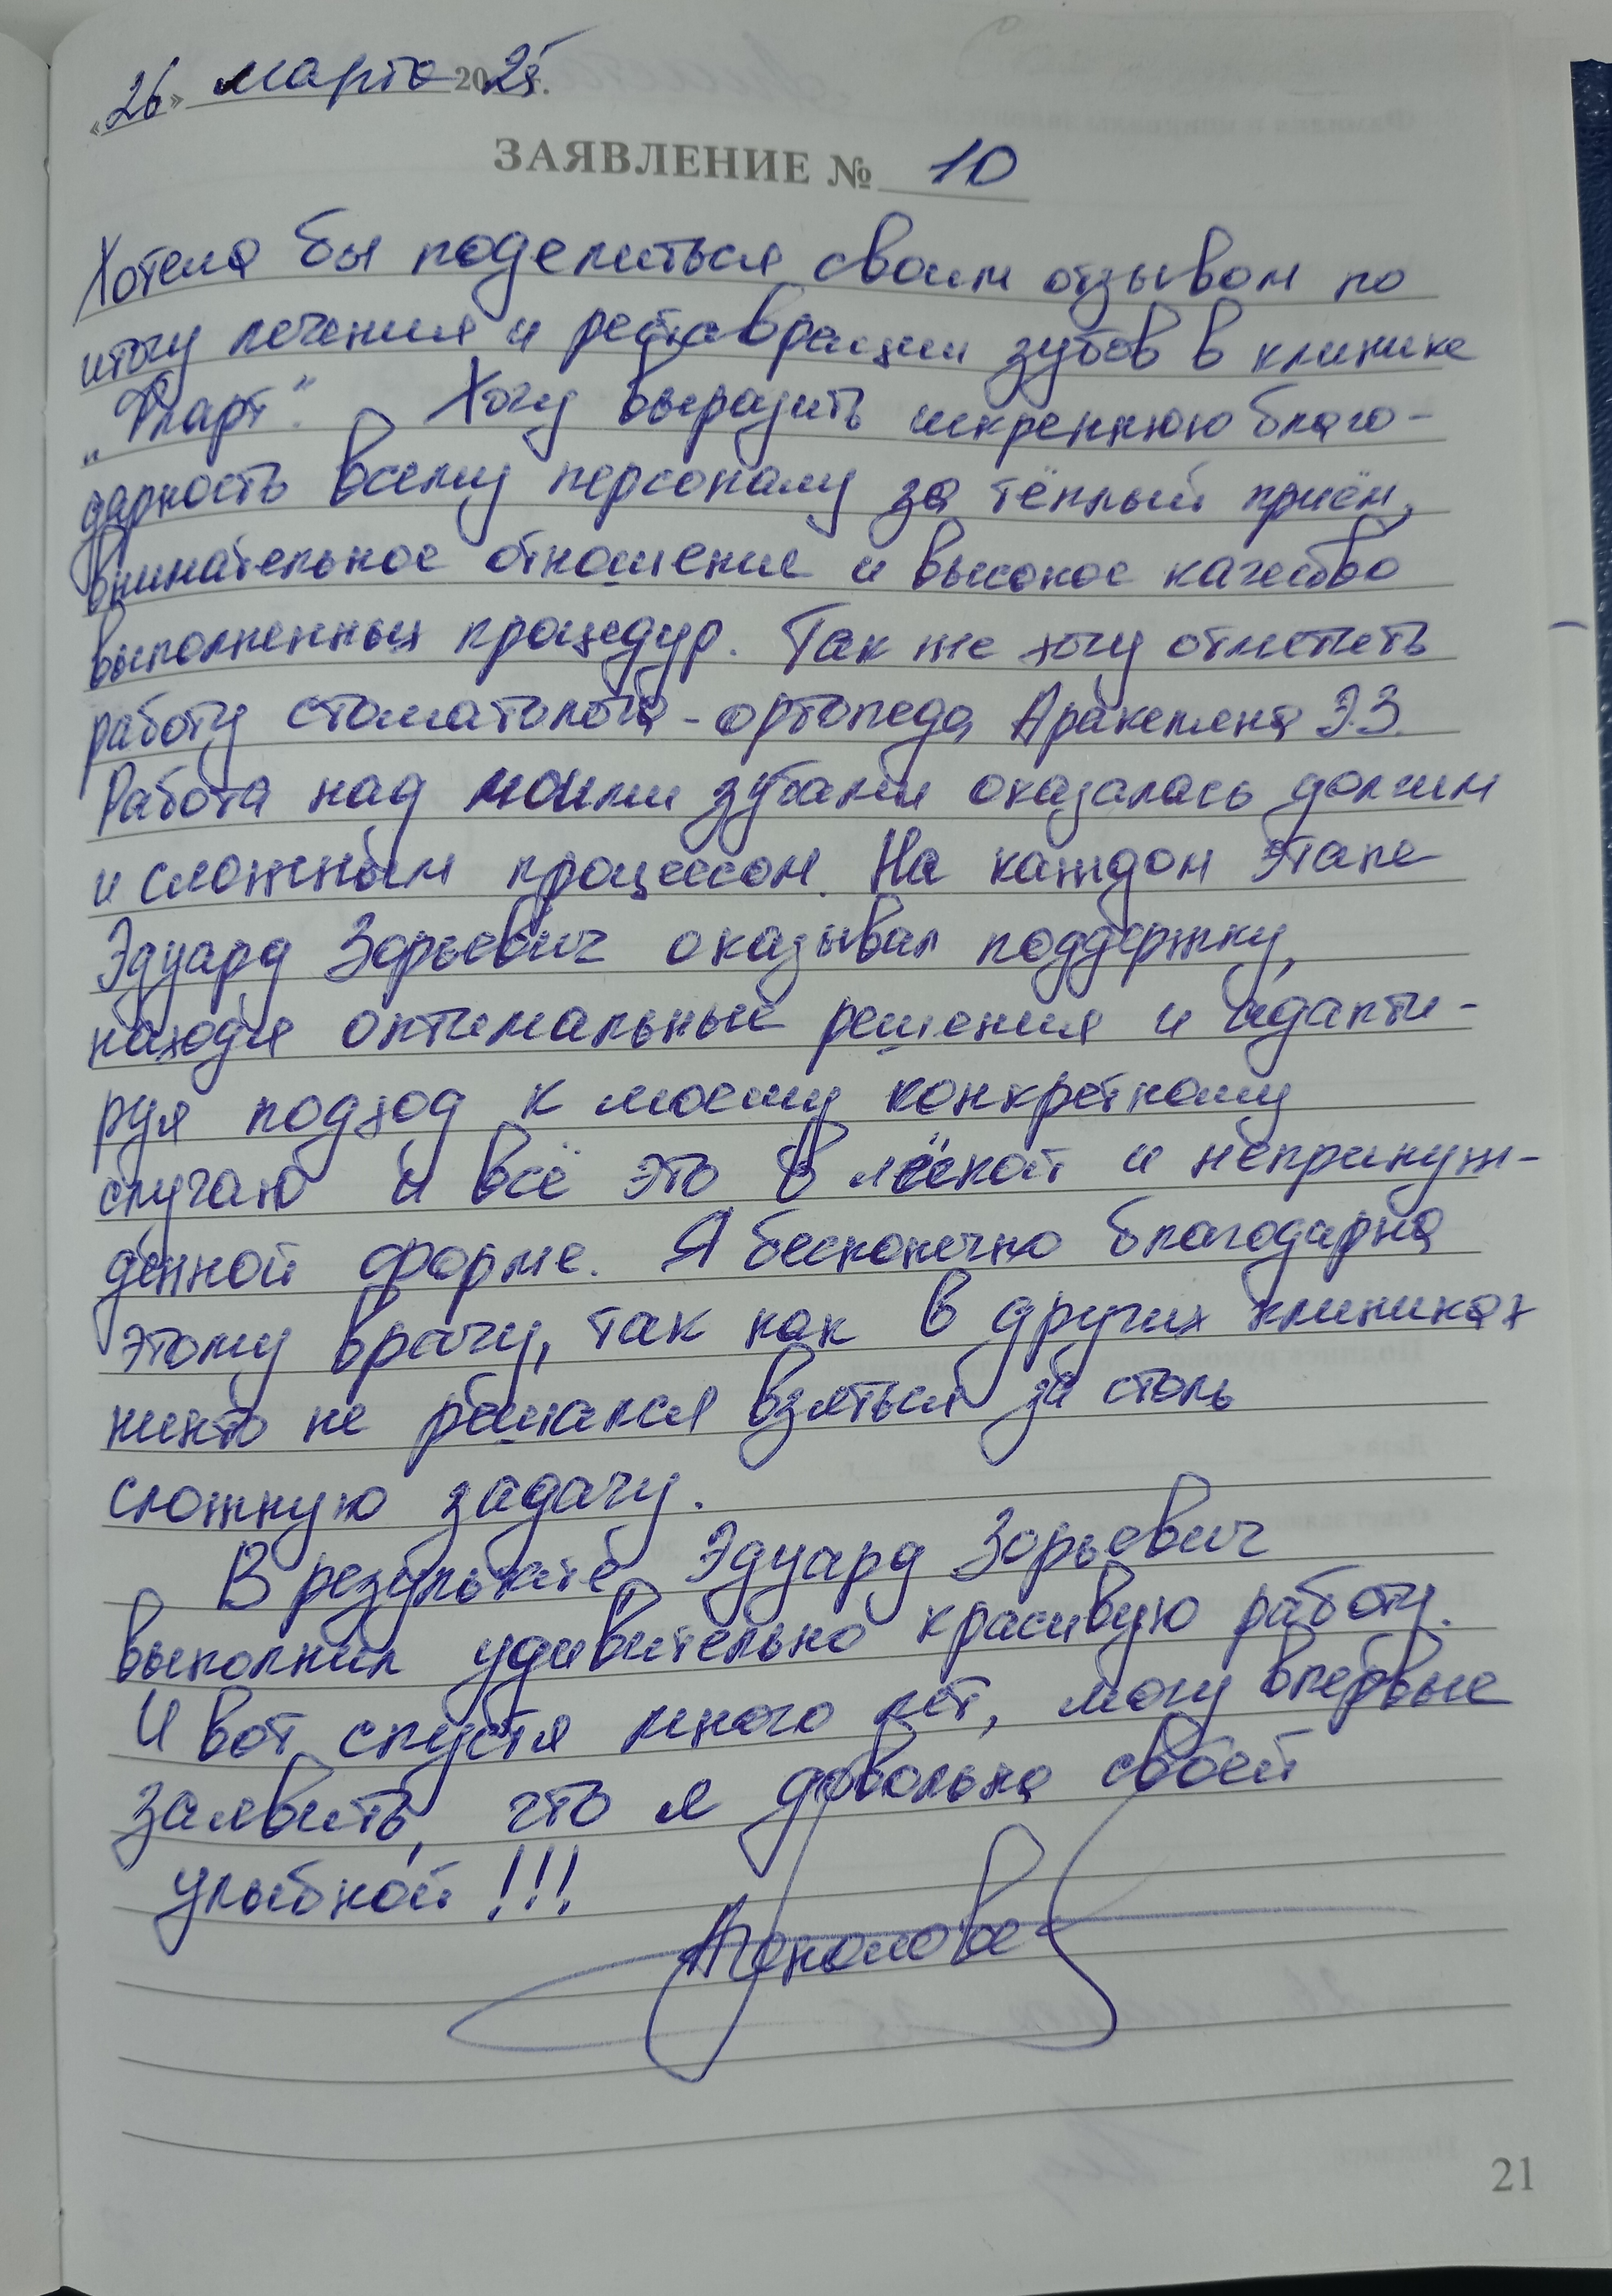 «26» марта 2025г.
ЗАЯВЛЕНИЕ № 10
Хотела бы поделиться своим отзывом по
итогу лечения и реставрации зубов в клинике
„Фларт". Хочу выразить искреннюю благо-
дарность всему персоналу за тёплый приём,
внимательное отношение и высокое качество
выполненных процедур. Так же хочу отметить
работу стоматолога-ортопеда Аракеляна Э.З.
Работа над моими зубами оказалась долгим
и сложным процессом. На каждом этапе
Эдуард Зорьевич оказывал поддержку,
находя оптимальные решения и адапти-
руя подход к моему конкретному
случаю и всё это в лёгкой и непринуж-
дённой форме. Я бесконечно благодарна
этому врачу, так как в других клиниках
никто не решался взяться за столь
сложную задачу.
В результате Эдуард Зорьевич
выполнил удивительно красивую работу.
И вот спустя много лет, могу впервые
заявить, что я довольна своей
улыбкой!!!
21